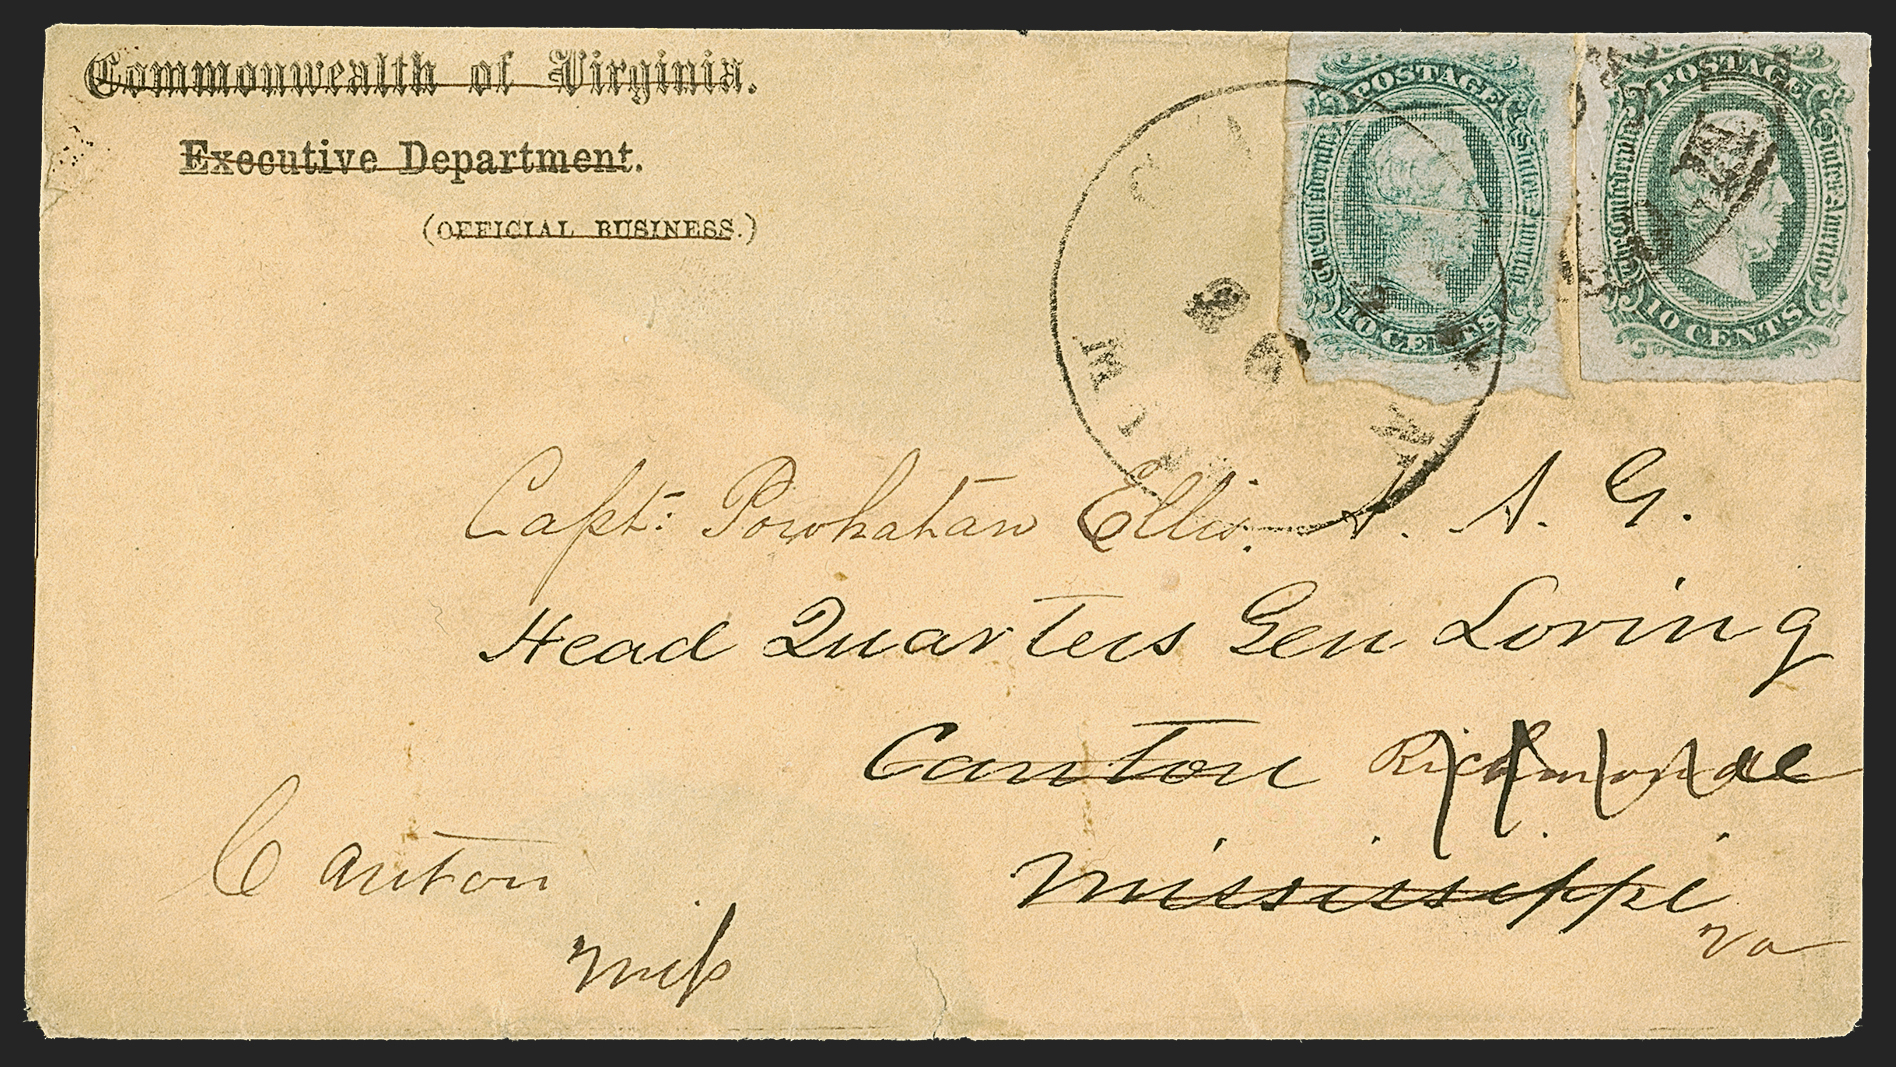 Commonwealth of Virginia.
Executive Department.
(OFFICIAL BUSINESS.)
POSTAGE
The Confederate States America
10 CENTS
POSTAGE
The Confederate States America
10 CENTS
Capt: Powhatan Ellis. A. A. G.
Head Quarters Gen Loring
Canton Richmond
Mississippi
Va
Canton
Miss